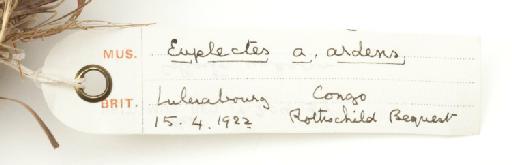 MUS. Euplectes a. ardens
BRIT. Luluabourg Congo
15. 4. 1922 Rothschild Bequest